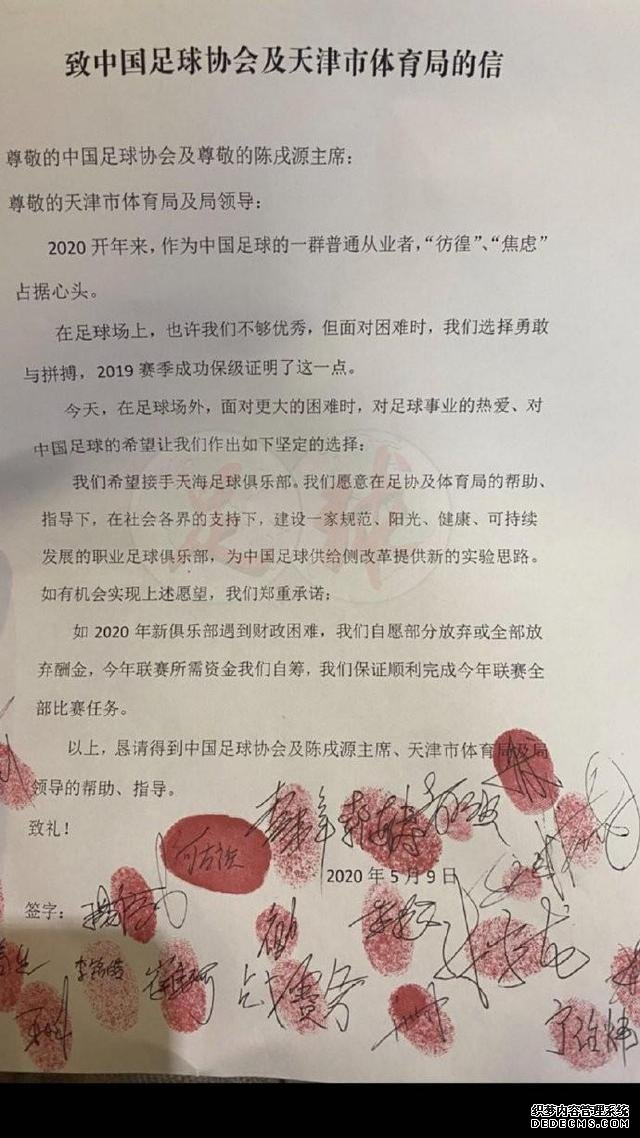 致中国足球协会及天津市体育局的信
尊敬的中国足球协会及尊敬的陈戌源主席：
尊敬的天津市体育局及局领导：
2020 开年来，作为中国足球的一群普通从业者，“彷徨”、“焦虑”
占据心头。
在足球场上，也许我们不够优秀，但面对困难时，我们选择勇敢
与拼搏，2019 赛季成功保级证明了这一点。
今天，在足球场外，面对更大的困难时，对足球事业的热爱、对
中国足球的希望让我们作出如下坚定的选择：
我们希望接手天海足球俱乐部。我们愿意在足协及体育局的帮助、
指导下，在社会各界的支持下，建设一家规范、阳光、健康、可持续
发展的职业足球俱乐部，为中国足球供给侧改革提供新的实验思路。
如有机会实现上述愿望，我们郑重承诺：
如 2020 年新俱乐部遇到财政困难，我们自愿部分放弃或全部放
弃酬金，今年联赛所需资金我们自筹，我们保证顺利完成今年联赛全
部比赛任务。
以上，恳请得到中国足球协会及陈戌源主席、天津市体育局及局
领导的帮助、指导。
致礼！
2020 年 5 月 9 日
签字：
织梦内容管理系统
DEDECMS.COM